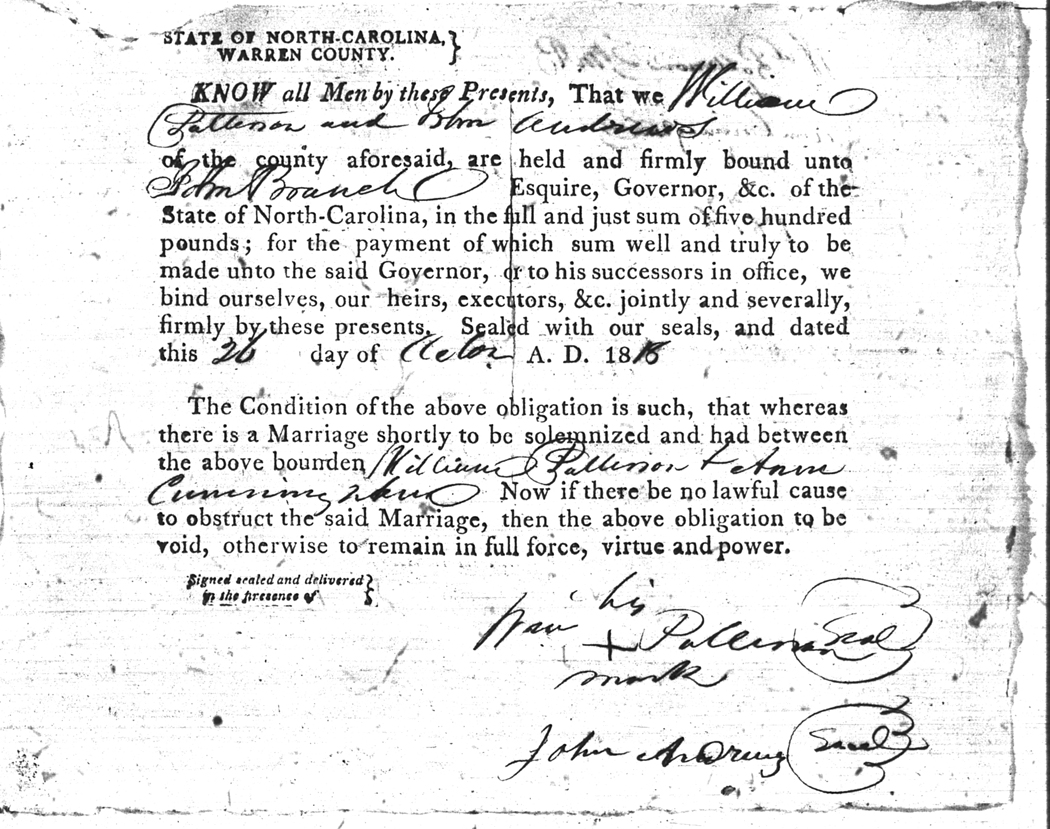 STATE OF NORTH-CAROLINA, }
WARREN COUNTY.
KNOW all Men by these Presents, That we William
Patterson and John Andrews
of the county aforesaid, are held and firmly bound unto
John Branch Esquire, Governor, &c. of the
State of North-Carolina, in the full and just sum of five hundred
pounds; for the payment of which sum well and truly to be
made unto the said Governor, or to his successors in office, we
bind ourselves, our heirs, executors, &c. jointly and severally,
firmly by these presents. Sealed with our seals, and dated
this 26 day of A. D. 1818
The Condition of the above obligation is such, that whereas
there is a Marriage shortly to be solemnized and had between
the above bounden William Patterson + Ann
Now if there be no lawful cause
to obstruct the said Marriage, then the above obligation to be
void, otherwise to remain in full force, virtue and power.
Signed sealed and delivered }
in the presence of
his
Wm + Patterson Seal
mark
John Seal